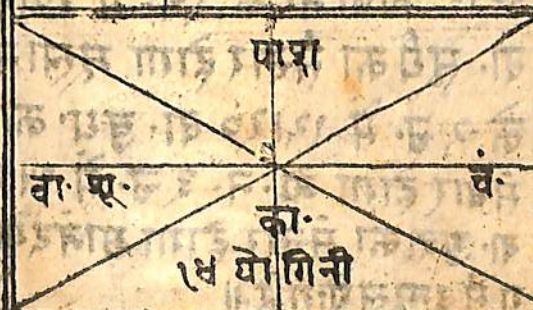 पाशा
वा· शू· चं·
का·
१४ योगिनी